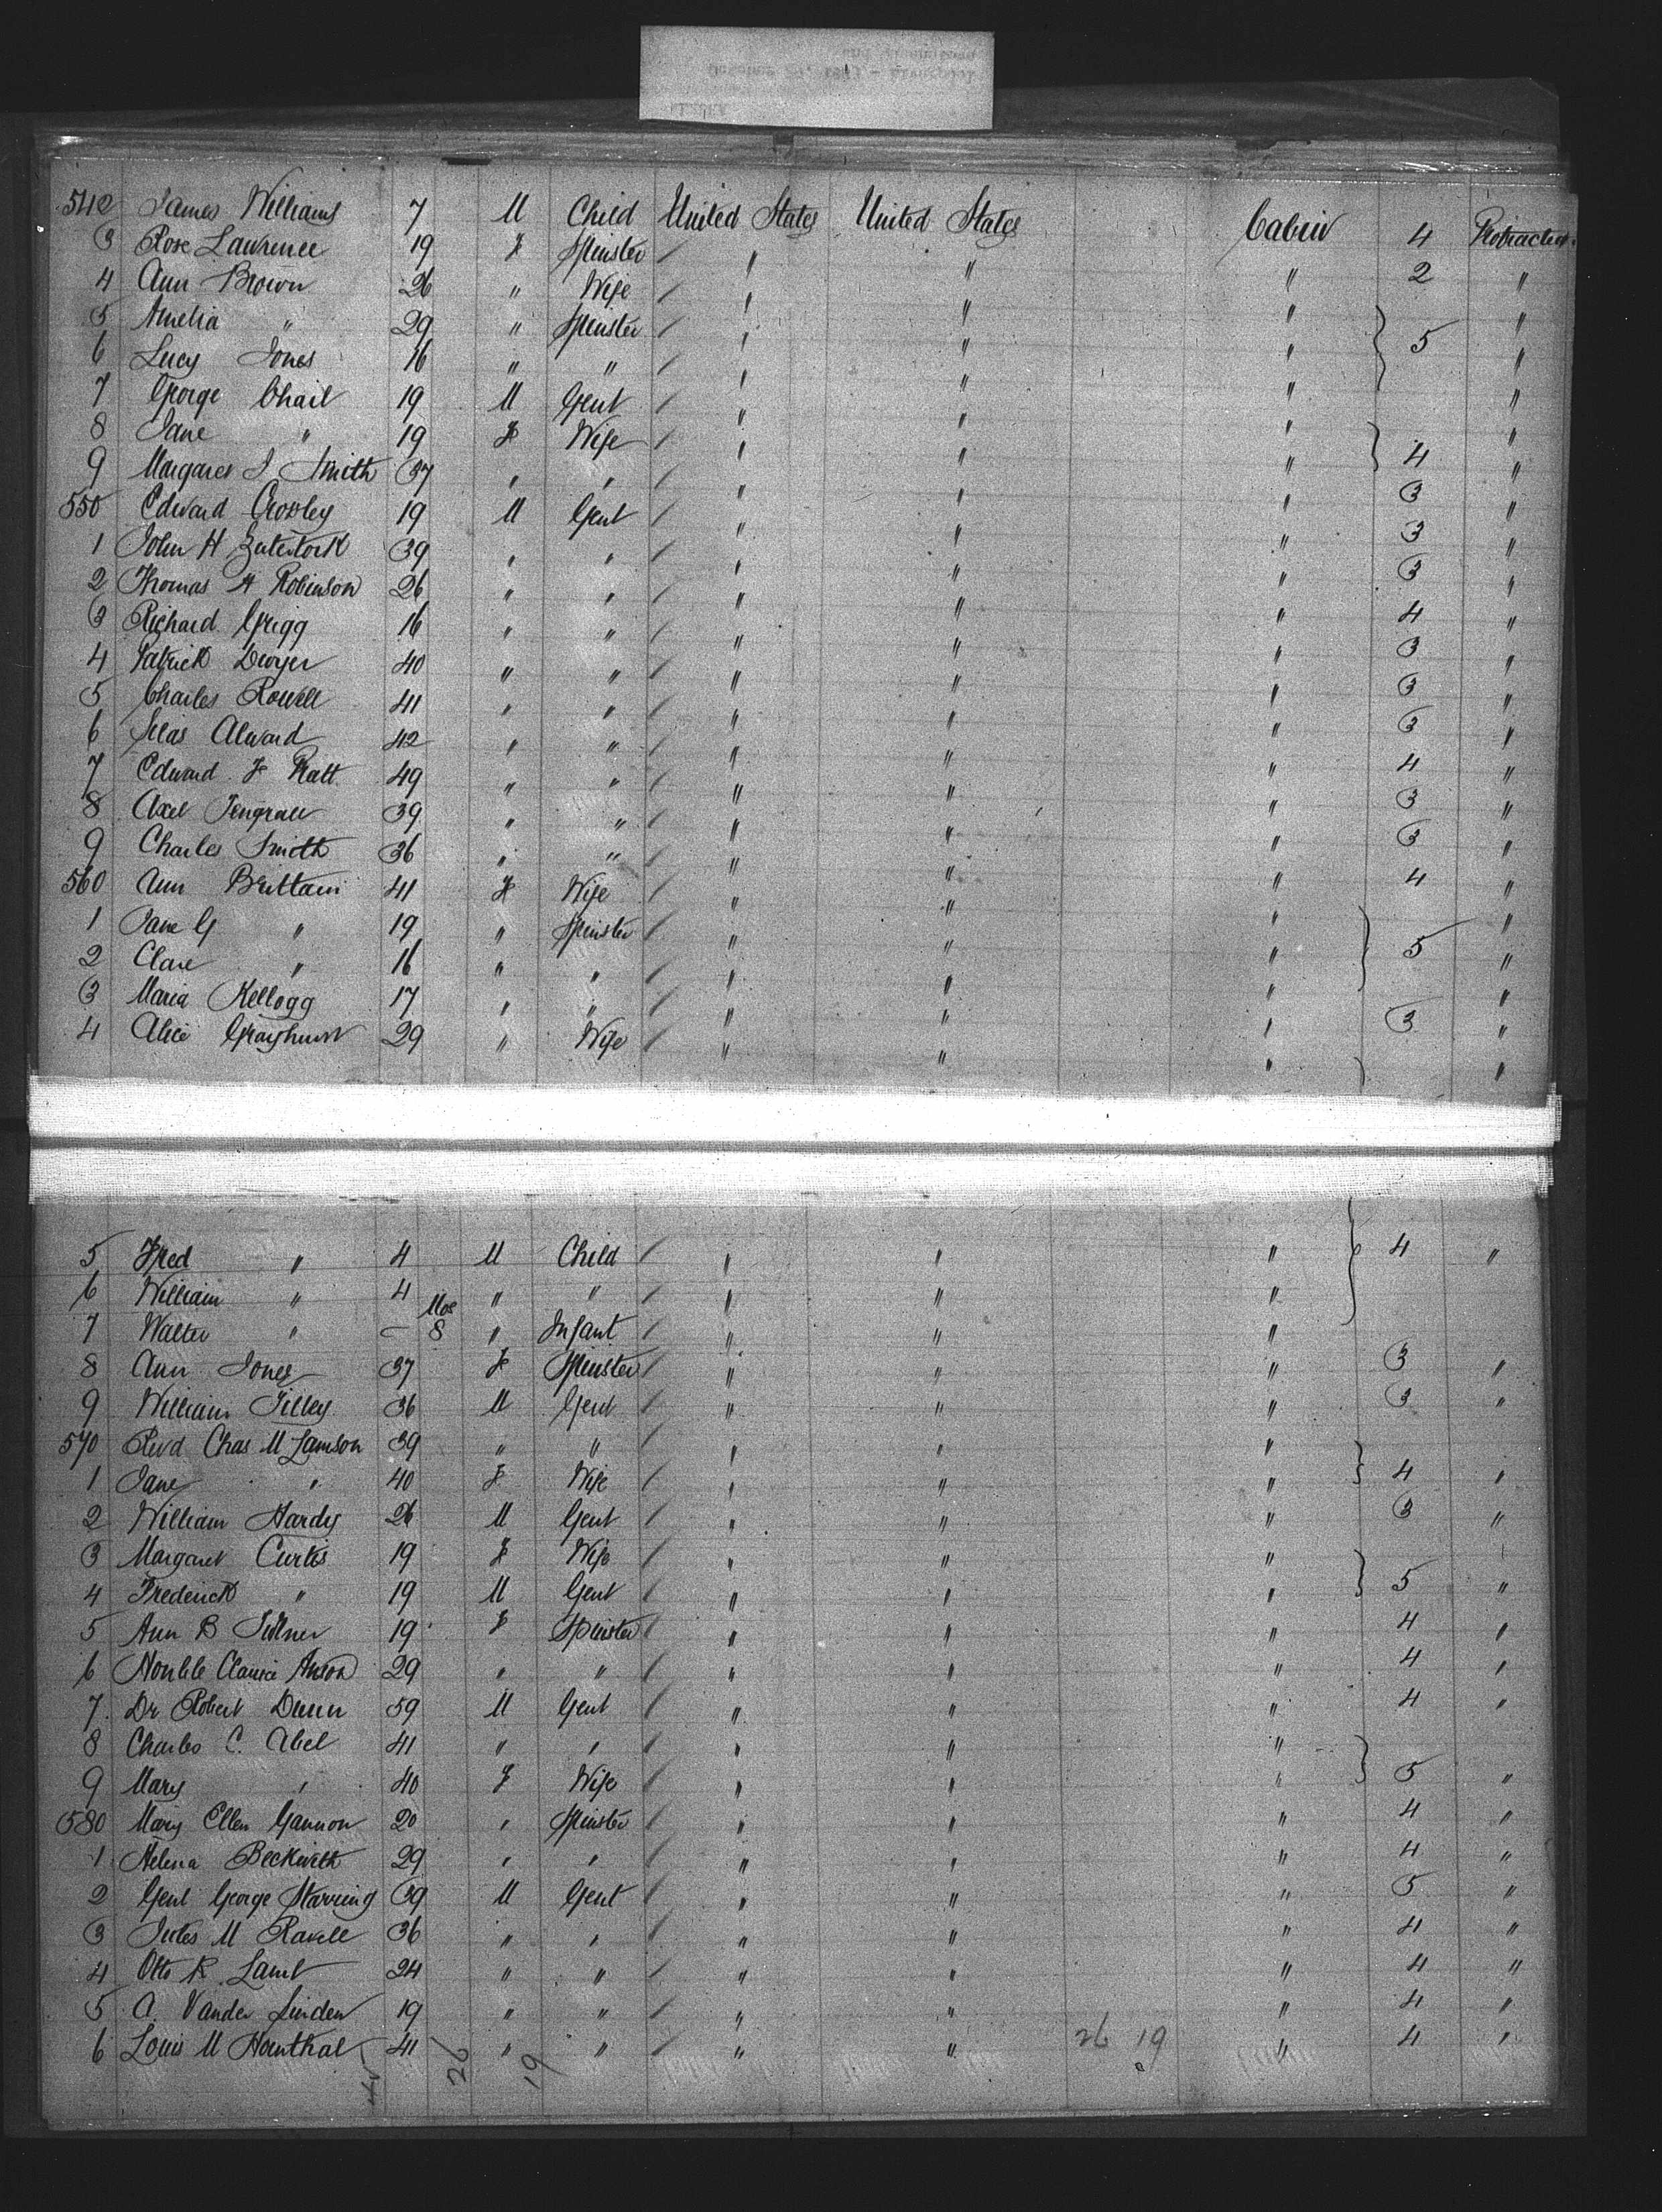 542 James Williams 7 M Child United States United States Cabin 4 Protracted
3 Rose Lawrence 19 F Spinster / " " " 2 "
4 Ann Brown 26 " Wife / " " " "
5 Amelia " 29 " Spinster / " " " 5 "
6 Lucy Jones 16 " " / " " " "
7 George Chail 19 M Gent / " " " "
8 Jane " 19 F Wife / " " " 4 "
9 Margaret J Smith 37 " " / " " " 3 "
550 Edward Crossley 19 M Gent / " " " 3 "
1 John H 39 " " / " " " 3 "
2 Thomas A Robinson 26 " " / " " " 4 "
3 Richard Grigg 16 " " / " " " 3 "
4 Patrick Dwyer 40 " " / " " " 3 "
5 Charles Rowell 41 " " / " " " 3 "
6 Silas Alward 42 " " / " " " 4 "
7 Edward F Pratt 49 " " / " " " 3 "
8 Axel Tengrall 39 " " / " " " 3 "
9 Charles Smith 36 " " / " " " 4 "
560 Ann Brittain 41 F Wife / " " " "
1 Jane G " 19 " Spinster / " " " 5 "
2 Clare " 16 " " / " " " "
3 Maria Kellogg 17 " " / " " " 3 "
4 Alice Grayhurst 29 " Wife / " " " "
5 Fred " 4 M Child / " " " 4 "
6 William " 4 " " / " " "
7 Walter " – 8 Mos " Infant / " " "
8 Ann Jones 37 F Spinster / " " " 3 "
9 William Tilley 36 M Gent / " " " 3 "
570 Revd Chas M Lamson 39 " " / " " "
1 Jane " 40 F Wife / " " " 4 "
2 William Hardy 26 M Gent / " " " 3 "
3 Margaret Curtis 19 F Wife / " " "
4 Frederick " 19 M Gent / " " " 5 "
5 Ann B 19 F Spinster / " " " 4 "
6 Honble Clarice Anson 29 " " / " " " 4 "
7 Dr Robert Dunn 59 M Gent / " " " 4 "
8 Charles C. Abel 41 " " / " " "
9 Mary " 40 F Wife / " " " 5 "
580 Mary Ellen Gannon 20 " Spinster / " " " 4 "
1 Helena Beckwith 29 " " / " " " 4 "
2 Genl George Starring 39 M Gent / " " " 5 "
3 Jules M Ravell 36 " " / " " " 4 "
4 Otto R. Lamb 24 " " / " " " 4 "
5 A. Vander Linden 19 " " / " " " 4 "
6 Louis M Hornthal 41 " " / " " 26 19 " 4 "
45 26 19